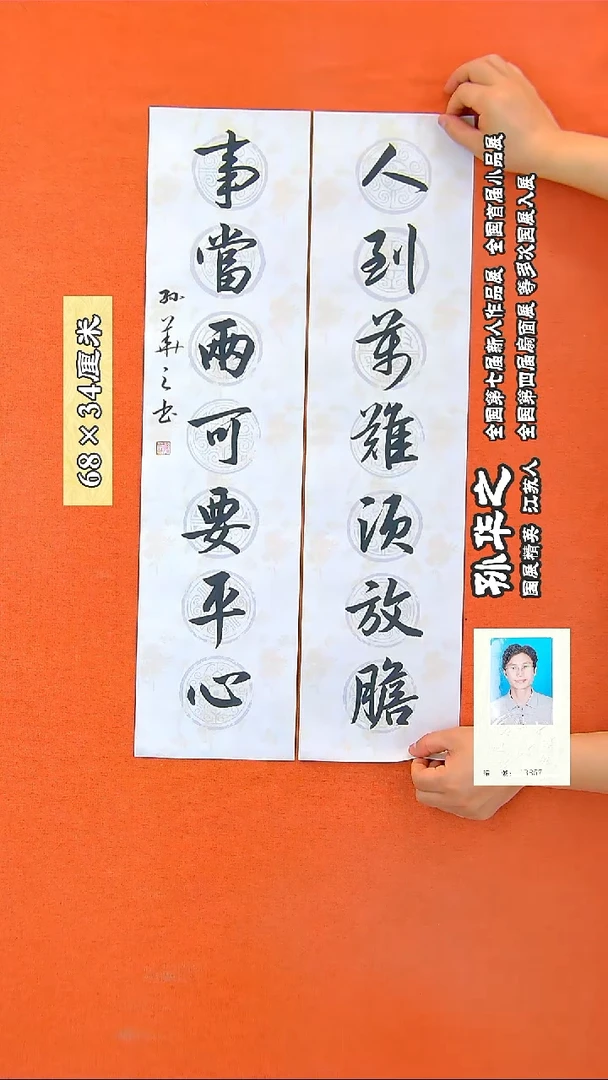 人到万難須放膽
事當兩可要平心
孙華之书
68×34厘米
孙华之
国展精英 江苏人
全国第七届新人作品展 全国首届小品展
全国第四届扇面展 等多次国展入展